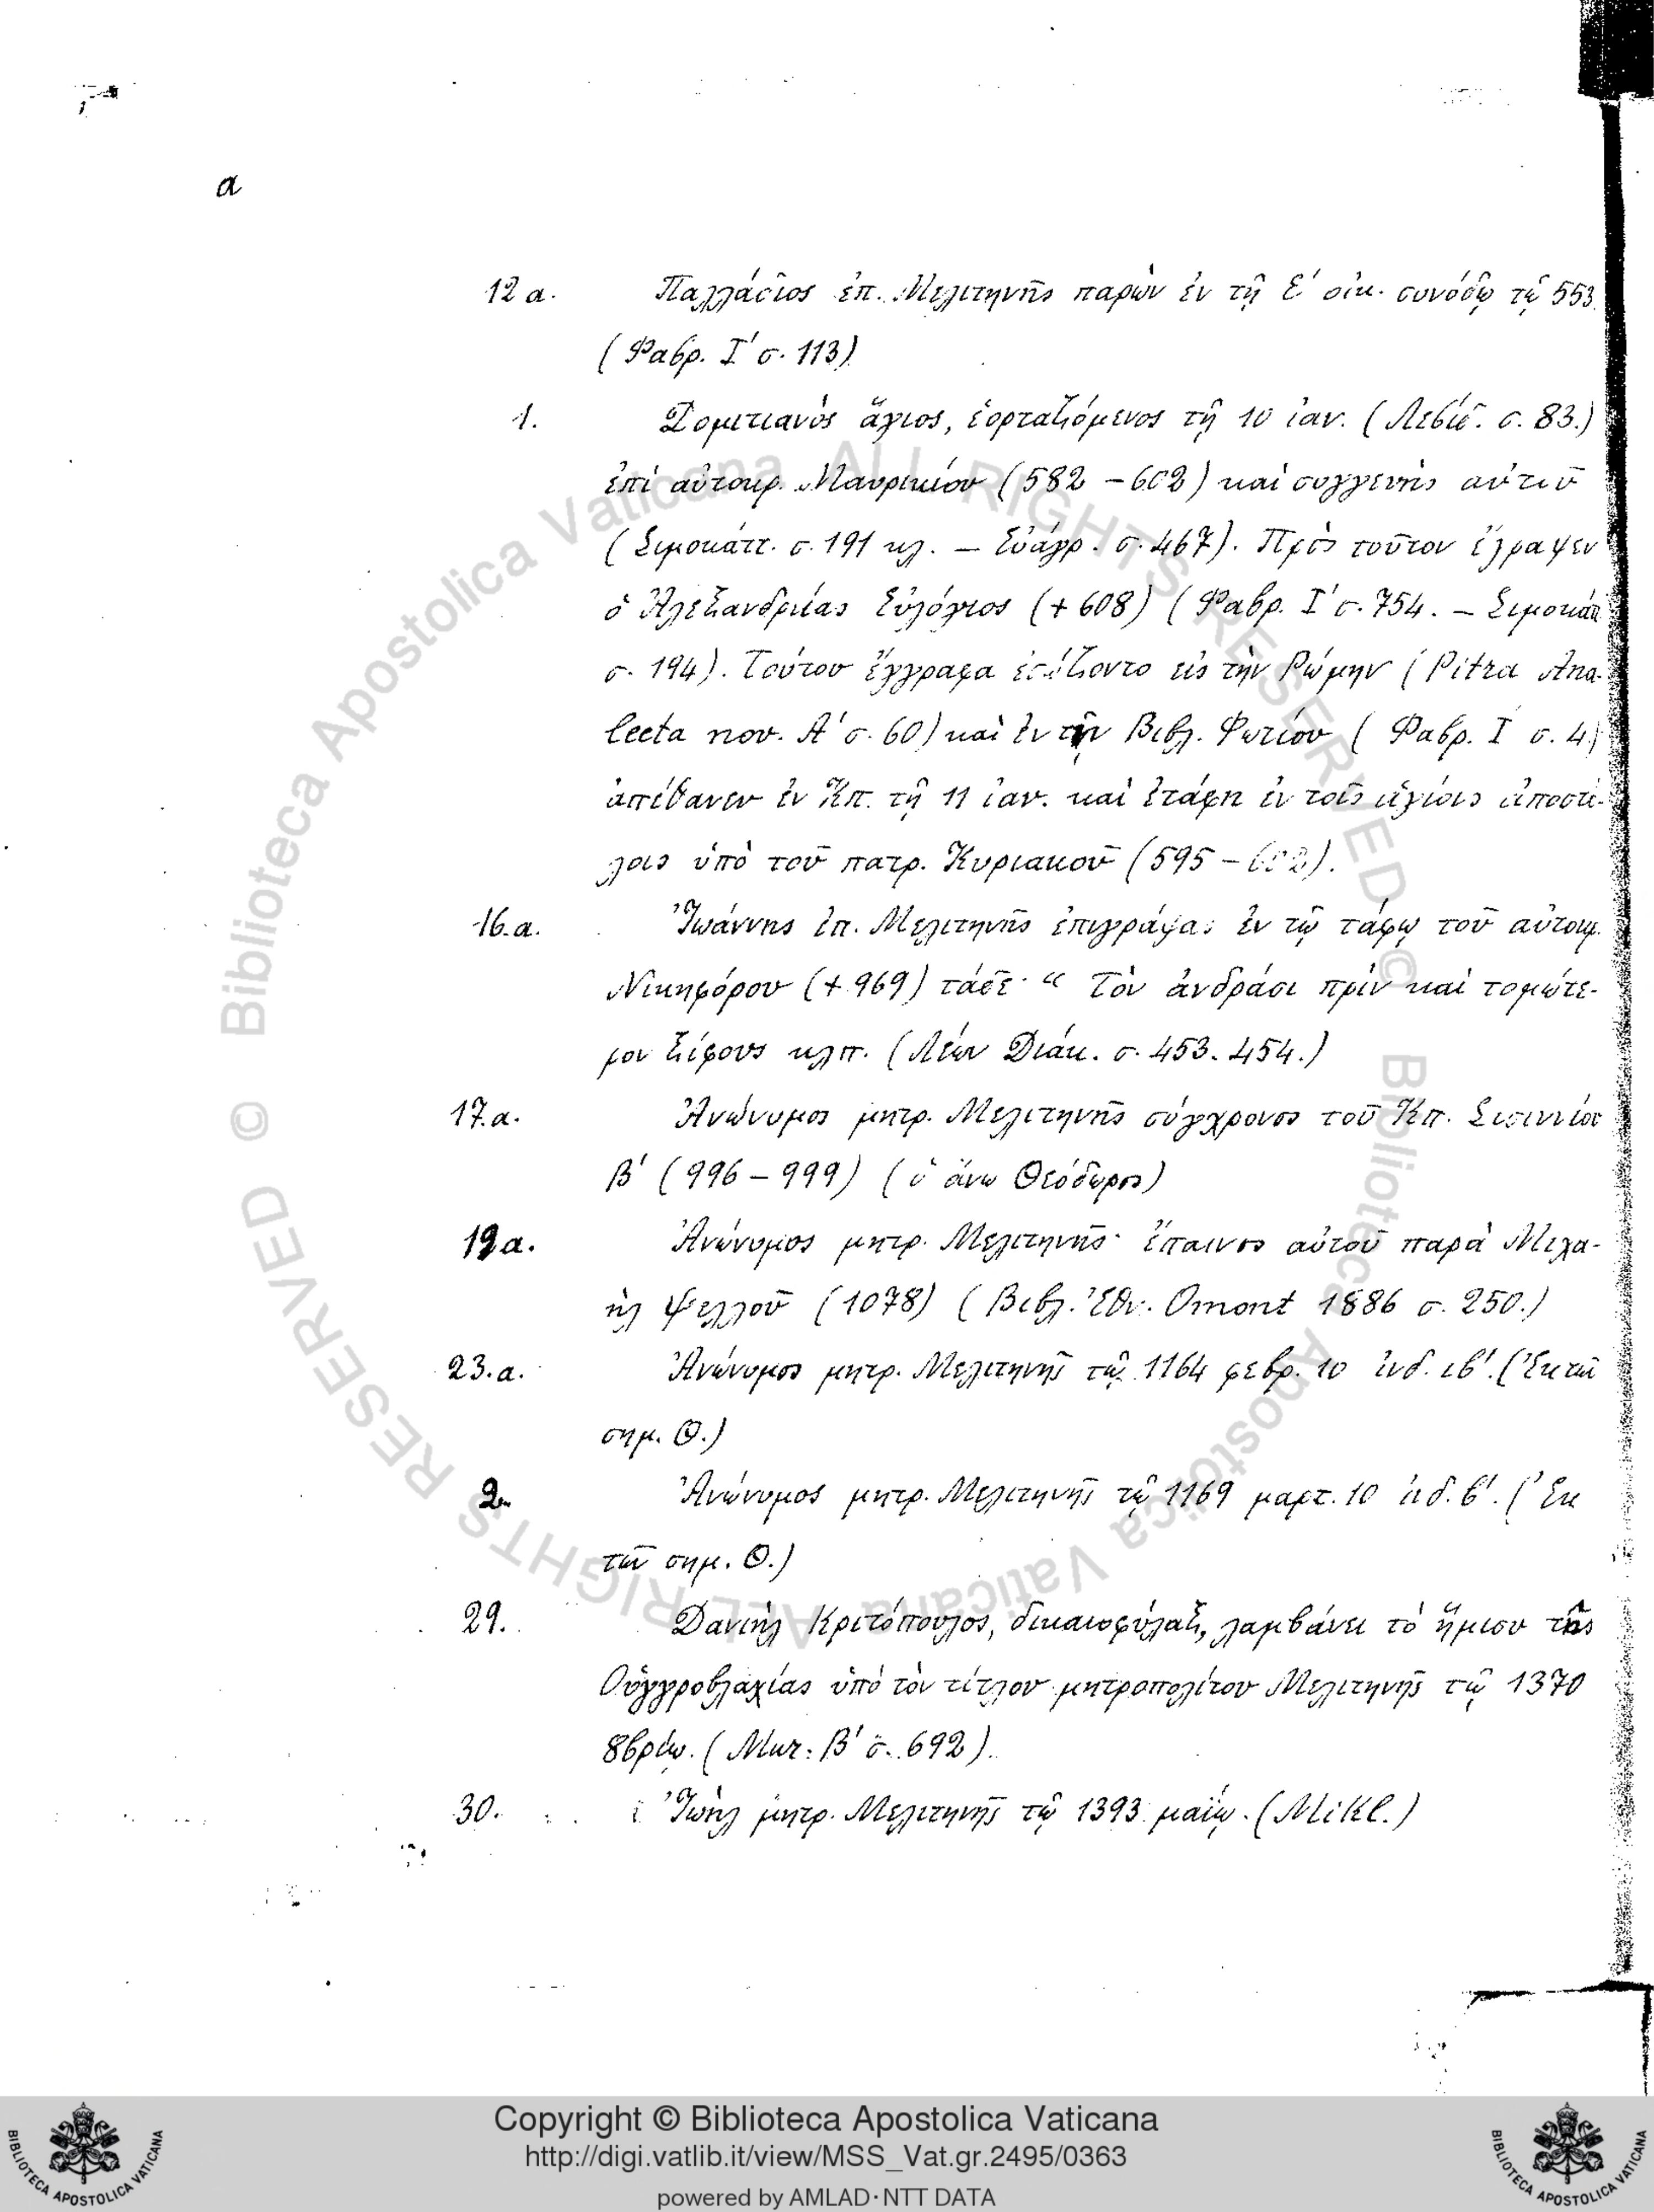 α
12 α. Παλλάδιος ἐπ. Μελιτηνῆς παρὼν ἐν τῇ Ε΄ οἰκ. συνόδῳ τῷ 553
(Φαβρ. Ι΄ σ. 113)
1. Δομιτιανὸς ἅγιος, ἑορταζόμενος τῇ 10 ἰαν. (Λεβίδ. σ. 83.)
ἐπὶ αὐτοκρ. Μαυρικίου (582 – 602) καὶ συγγενὴς αὐτοῦ
(Σιμοκάττ. σ. 191 κλ. – Εὐάγρ. σ. 467). Πρὸς τοῦτον ἔγραψεν
ὁ Ἀλεξανδρείας Εὐλόγιος (+ 608) (Φαβρ. Ι΄ σ. 754. – Σιμοκάττ
σ. 194). Τούτου ἔγγραφα ἐσῴζοντο εἰς τὴν Ρώμην (Pitra Ana-
lecta nov. Α΄ σ. 60) καὶ ἐν τῇ Βιβλ. Φωτίου (Φαβρ. Ι σ. 4)
ἀπέθανεν ἐν Κπ. τῇ 11 ἰαν. καὶ ἐτάφη ἐν τοῖς ἁγίοις ἀποστό-
λοις ὑπὸ τοῦ πατρ. Κυριακοῦ (595 –
16.α. Ἰωάννης ἐπ. Μελιτηνῆς ἐπιγράψας ἐν τῷ τάφῳ τοῦ αὐτοκρ.
Νικηφόρου (+ 969) τάδε· “ Τὸν ἀνδράσι πρὶν καὶ τομώτε-
ρον ξίφους κλπ. (Λέων Διάκ. σ. 453. 454.)
17.α. Ἀνώνυμος μητρ. Μελιτηνῆς σύγχρονος τοῦ Κπ. Σισιννίου
Β΄ (996 – 999) (ὁ ἄνω Θεόδωρος)
19α. Ἀνώνυμος μητρ. Μελιτηνῆς· ἔπαινος αὐτοῦ παρὰ Μιχα-
ὴλ Ψελλοῦ (1078) (Βιβλ. Ἐθν. Omont 1886 σ. 250.)
23.α. Ἀνώνυμος μητρ. Μελιτηνῆς τῷ 1164 φεβρ. 10 ἰνδ. ιβ΄. (Ἐκ τῶν
σημ. Θ.)
2. Ἀνώνυμος μητρ. Μελιτηνῆς τῷ 1169 μαρτ. 10 ἰνδ. β΄. (Ἐκ
τῶν σημ. Θ.)
29. Δανιὴλ Κριτόπουλος, δικαιοφύλαξ, λαμβάνει τὸ ἥμισυ τῆς
Οὑγγροβλαχίας ὑπὸ τὸν τίτλον μητροπολίτου Μελιτηνῆς τῷ 1370
8βρίῳ. (Μικ: Β΄ σ. 692).
30. Ἰωὴλ μητρ. Μελιτηνῆς τῷ 1393 μαΐῳ. (Mikl.)
© Biblioteca Apostolica Vaticana ALL RIGHTS RESERVED © Biblioteca Apostolica Vaticana ALL RIGHTS RESERVED
Copyright © Biblioteca Apostolica Vaticana
http://digi.vatlib.it/view/MSS_Vat.gr.2495/0363
powered by AMLAD·NTT DATA
BIBLIOTECA APOSTOLICA VATICANA
BIBLIOTECA APOSTOLICA VATICANA